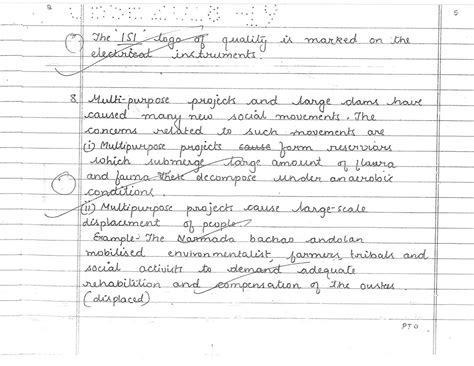 The 'ISI' logo of quality is marked on the
electrical instruments.
8. Multi-purpose projects and large dams have
caused many new social movements. The
concerns related to such movements are
(i) Multipurpose projects cause form reserviors
which submerge large amount of flaura
and fauna these decompose under anaerobic
conditions.
(ii) Multipurpose projects cause large-scale
displacement of people.
Example- The Narmada bachao andolan
mobilised environmentalist, farmers, tribals and
social activists to demand adequate
rehabilition and compensation of the oustes
(displaced)
PTO